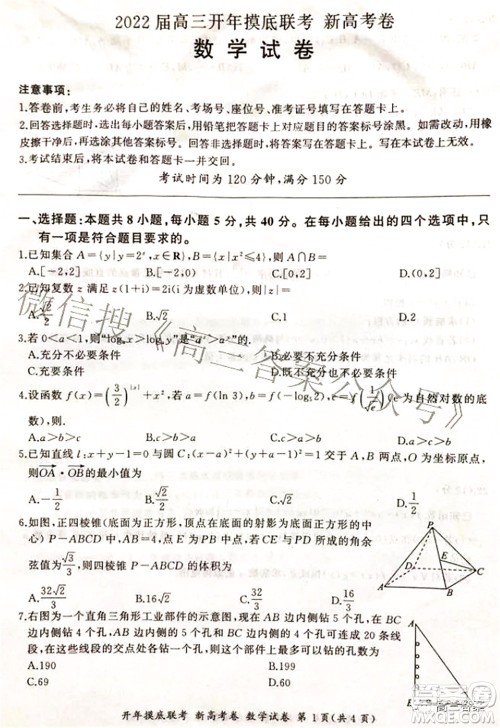 2022届高三开年摸底联考 新高考卷
数学试卷
注意事项:
1.答卷前,考生务必将自己的姓名、考场号、座位号、准考证号填写在答题卡上。
2.回答选择题时,选出每小题答案后,用铅笔把答题卡上对应题目的答案标号涂黑。如需改动,用橡
皮擦干净后,再选涂其他答案标号。回答非选择题时,将答案写在答题卡上。写在本试卷上无效。
3.考试结束后,将本试卷和答题卡一并交回。
考试时间为120分钟,满分150分
一、选择题:本题共8小题,每小题5分,共40分。在每小题给出的四个选项中,只
有一项是符合题目要求的。
1.已知集合A={y|y=2ˣ,x∈R},B={x|x²≤4},则A∩B=
A.[-2,2] B.[-2,0) C.(0,2] D.(0,2)
2.已知复数z满足z(1+i)=2i(i为虚数单位),则|z|=
B.√2 C.1 D.2
3.若0<a<1,则
A.充分不必要条件 B.必要不充分条件
C.充要条件 D.既不充分也不必要条件
4.设函数f(x)=(3/2)^|x|+x²,若a=f(ln 3),b=f(-log 2),c=f(1/√e)(e为自然对数的底数),
则
A.a>b>c B.c>b>a D.a>c>b
5.已知直线l:x+y=0与圆C:(x-a)²+(y+a-1)²=1相交于A,B两点,O为坐标原点,
则OA·OB的最小值为
A.-1/2 B.√2 D.1/2
6.如图,正四棱锥(底面为正方形,顶点在底面的射影为底面正方形的中
心)P-ABCD中,底面ABCD的边长为4,若CE与PD所成角的余
弦值为√3/3,则四棱锥P-ABCD的体积为
A.32√2/3 B.16√2/3 C.32/3 D.16/3
7.右图为一直角三角形工业部件的示意图,现在AB边内侧钻5个孔,在BC
边内侧钻4个孔,AB边内的5个孔和BC边内的4个孔可连成20条线
段,在这些线段的交点处各钻一个孔,则这个部件上最多可以钻的孔数为
A.190
C.69
P
D
A
B
C
E
A
B
C
开年摸底联考 新高考卷 数学试卷 第1页(共4页)
微信搜《高三答案公众号》
高三答案